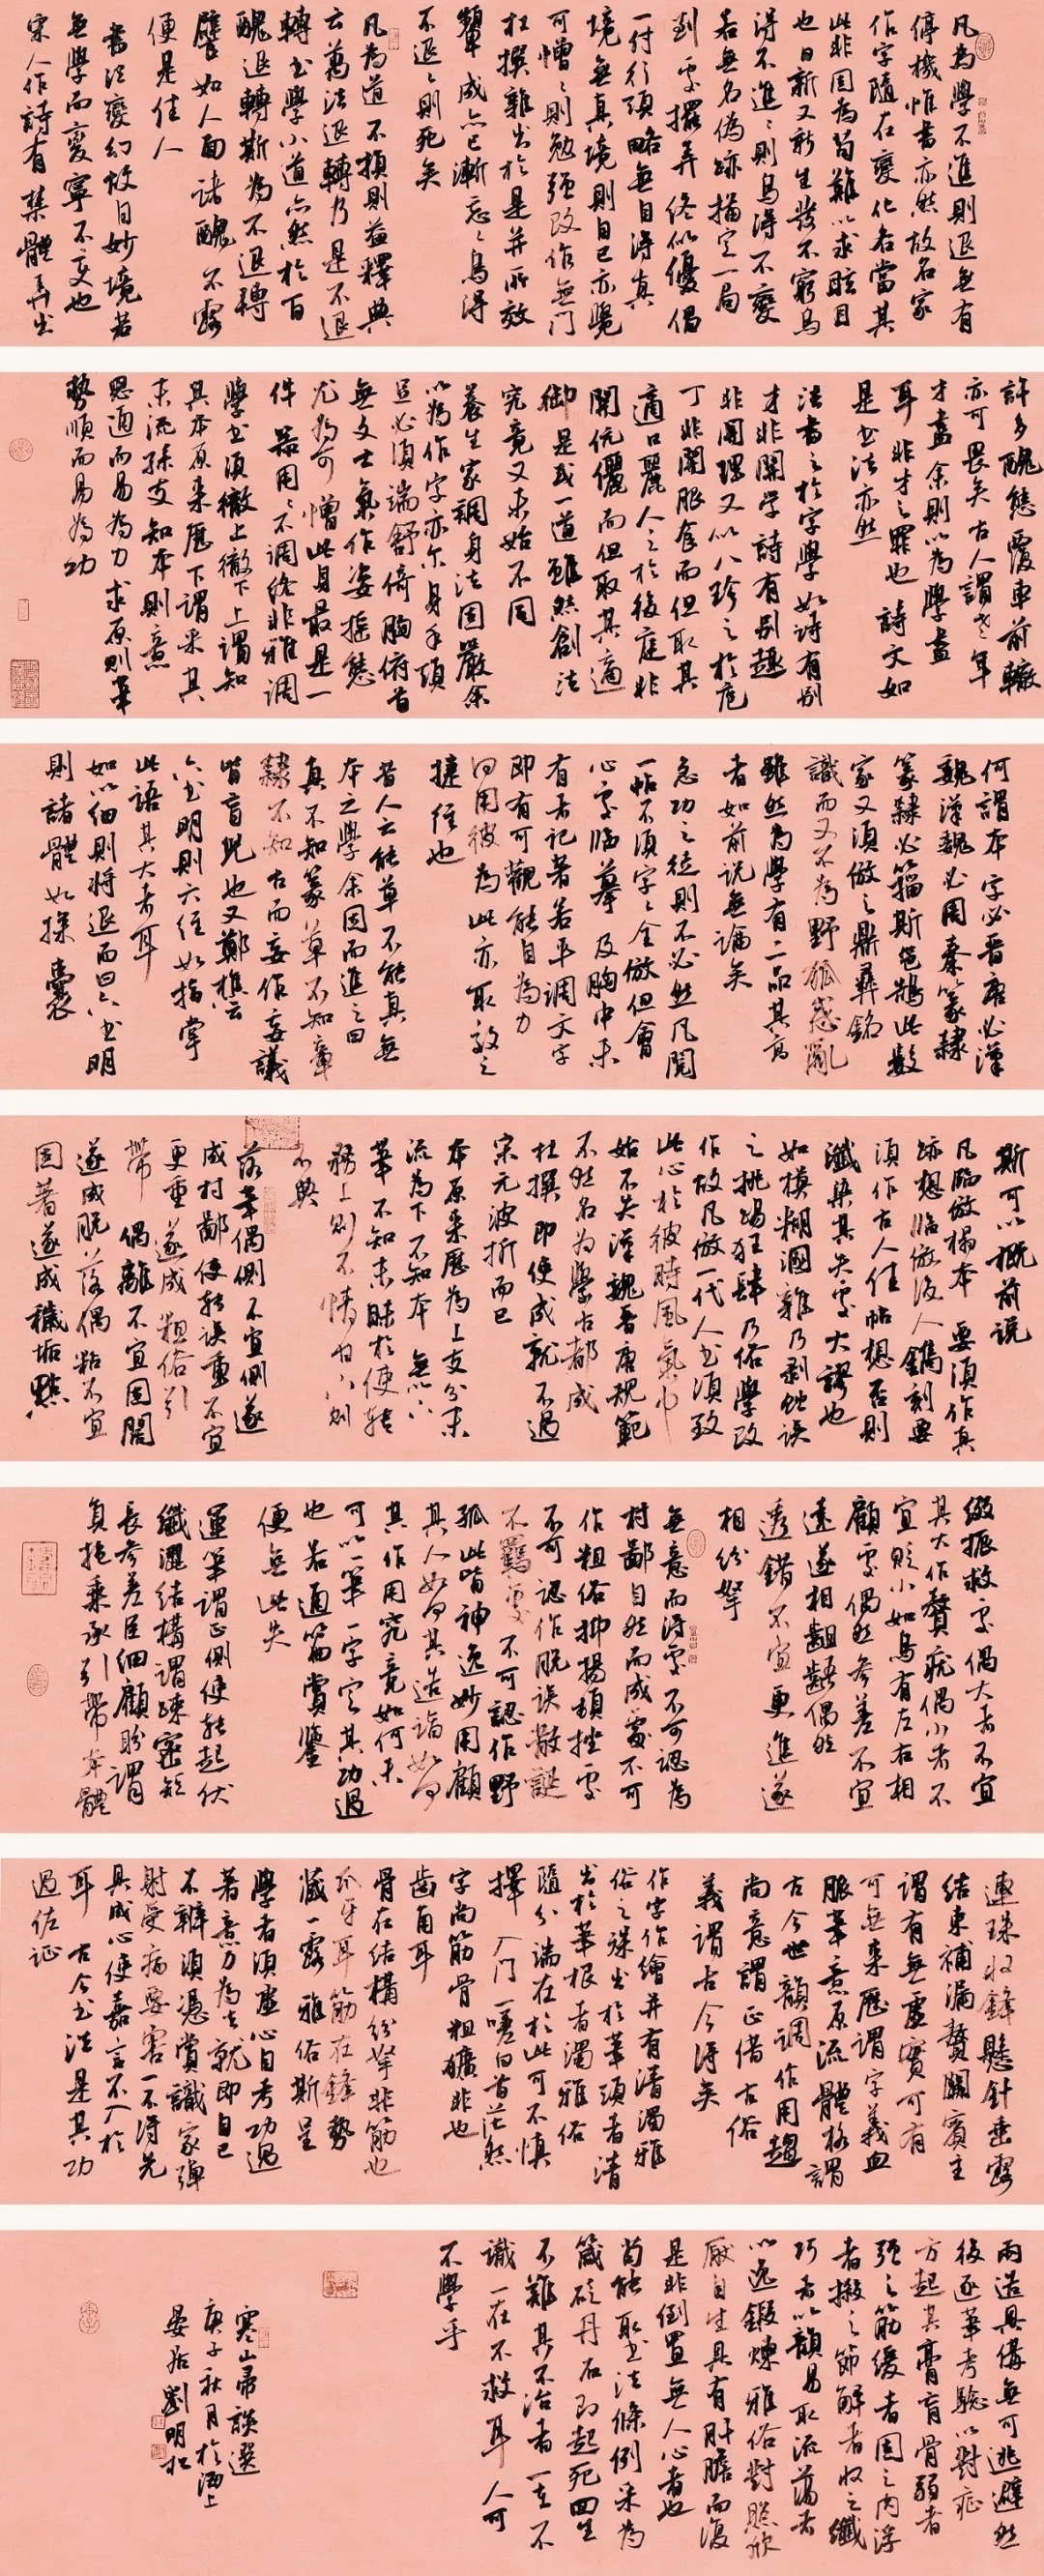 凡為學不進則退無有
停機惟書亦然故名家
作字隨在變化者當其
此非固為苟難以求眩目
也日新又新生發不窮烏
得不進進則烏得不變
若無名偽跡描定一局
到處擺弄終似優倡
一付行頭略無自得真
境無真境則自己亦覺
可憎憎則勉強改作無門
杜撰雜出於是并所效
顰成亦已漸忘忘烏得
不退退則死矣
凡為道不損則益釋典
云萬法退轉乃是不退
轉書學小道亦然於百
醜退轉斯為不退轉
譬如人面諸醜不露
便是佳人
書法變幻恢目妙境若
無學而變寧不變也
宋人作詩有集體弄出
許多醜態覆車前轍
亦可畏矣古人謂老年
才盡余則以為學盡
耳非才之罪也詩文如
是書法亦然
法書之於字學如詩有別
才非關学詩有別趣
非關理又以八珍之於庖
丁非關服食而但取其
適口麗人之於後庭非
關伉儷而但取其適
御是或一道雖然創法
究竟又未始不同
養生家調身法固嚴余
以為作字亦尔身手頭
足必須端舒倚胸俯首
無文士氣作姿搖態
尤為可憎此身最是一
件器用用不調終非雅調
學書須徹上徹下上謂知
其本原來歷下謂采其
末流孫支知本則意
思通而易為力求原則筆
勢順而易為功
何謂本字必晉唐必漢
魏漢魏必周秦篆隸
篆隸必籀斯邕鵠此數
家又須倣之鼎彝銘
識而又不為野狐惑亂
雖然為學有二品其高
者如前說無論矣
急功之徒則不必然凡閱
一帖不須字字全倣但會
心處臨摹及胸中未
有者記著若平調文字
即有可觀能自為力
何用彼為此亦取效之
捷徑也
昔人云能草不能真無
本之學余因而進之曰
真不知篆草不知章
隸不知古而妄作妄議
皆盲兒也又鄭樵云
六書明則六經如指掌
此語其大者耳
如以細則將退而曰六書明
則諸體如探囊
斯可以概前說
凡臨倣搨本要須作真
跡想臨倣後人鐫刻要
須作古人佳帖想否則
纖染其失處大謬也
如模糊溷雜乃剥蝕誤
之挑踢狂肆乃俗學改
作故凡倣一代人書須致
此心於彼時風氣中
始不失漢魏晉唐規範
不然名為學古都成
杜撰即使成就不過
宋元波折而已
本原來歷為上支分末
流為下不知本無以下
筆不知末昧於使轉
務上則不情有下則
不典
落筆偶側不宜側遂
成村鄙使轉誤重不宜
更重遂成粗俗引
帶偶離不宜固闊
遂成脫落偶粘不宜
固著遂成穢垢點
綴振救處偶大者不宜
其大作贅疣偶小者不
宜貶小如烏有左右相
顧處偶然参差不宜
遠遂相齟齬偶然
透錯不宜更進遂
相紛拏
無意而得處不可認為
村鄙自然而成處不可
作粗俗抑揚頓挫處
不可認作脫誤散誕
不羈處不可認作野
狐此皆神逸妙用顧
其人如何其造詣如何
其作用究竟如何未
可以一筆一字定其功過
也若通篇賞鑒
便無此失
運筆謂正側使轉起伏
纖濃結構謂疎密短
長参差巨細顧盼謂
負抱乘承引帶本體
連珠收鋒懸針垂露
結束補漏贅關賓主
謂有無虛實可有
可無來歷謂字義血
脈筆意原流體格謂
古今世韻調作用趨
尚意謂正借古俗
義謂古今得矣
作字作繪并有清濁雅
俗之殊出於筆頭者清
出於筆根者濁雅俗
隨分端在於此可不慎
擇入門一嘆白首茫然
字尚筋骨粗獷非也
齒角耳
骨在結構紛拏非筋也
爪牙耳筋在鋒勢
藏一露雅俗斯呈
學者須虛心自考功過
著意力為去就即自己
不辨須憑賞識家彈
射受病要害一不得先
具成心使嘉言不入於
耳古今書法是其功
過佐証
兩造具備無可逃避然
後逐筆考驗以對症
方起其膏肓骨弱者
強之筋緩者固之內浮
者搬之節解者收之纖
巧者以韻易取流蕩者
以逸鍛煉雅俗對照欣
厭自生具有肝膽而復
是非倒置無人心者也
苟能取書法條例采為
箴砭丹石即起死回生
不難其不治者一在不
識一在不救耳人可
不學乎
寒山帚談選
庚子秋月於海上
晏居劉明松